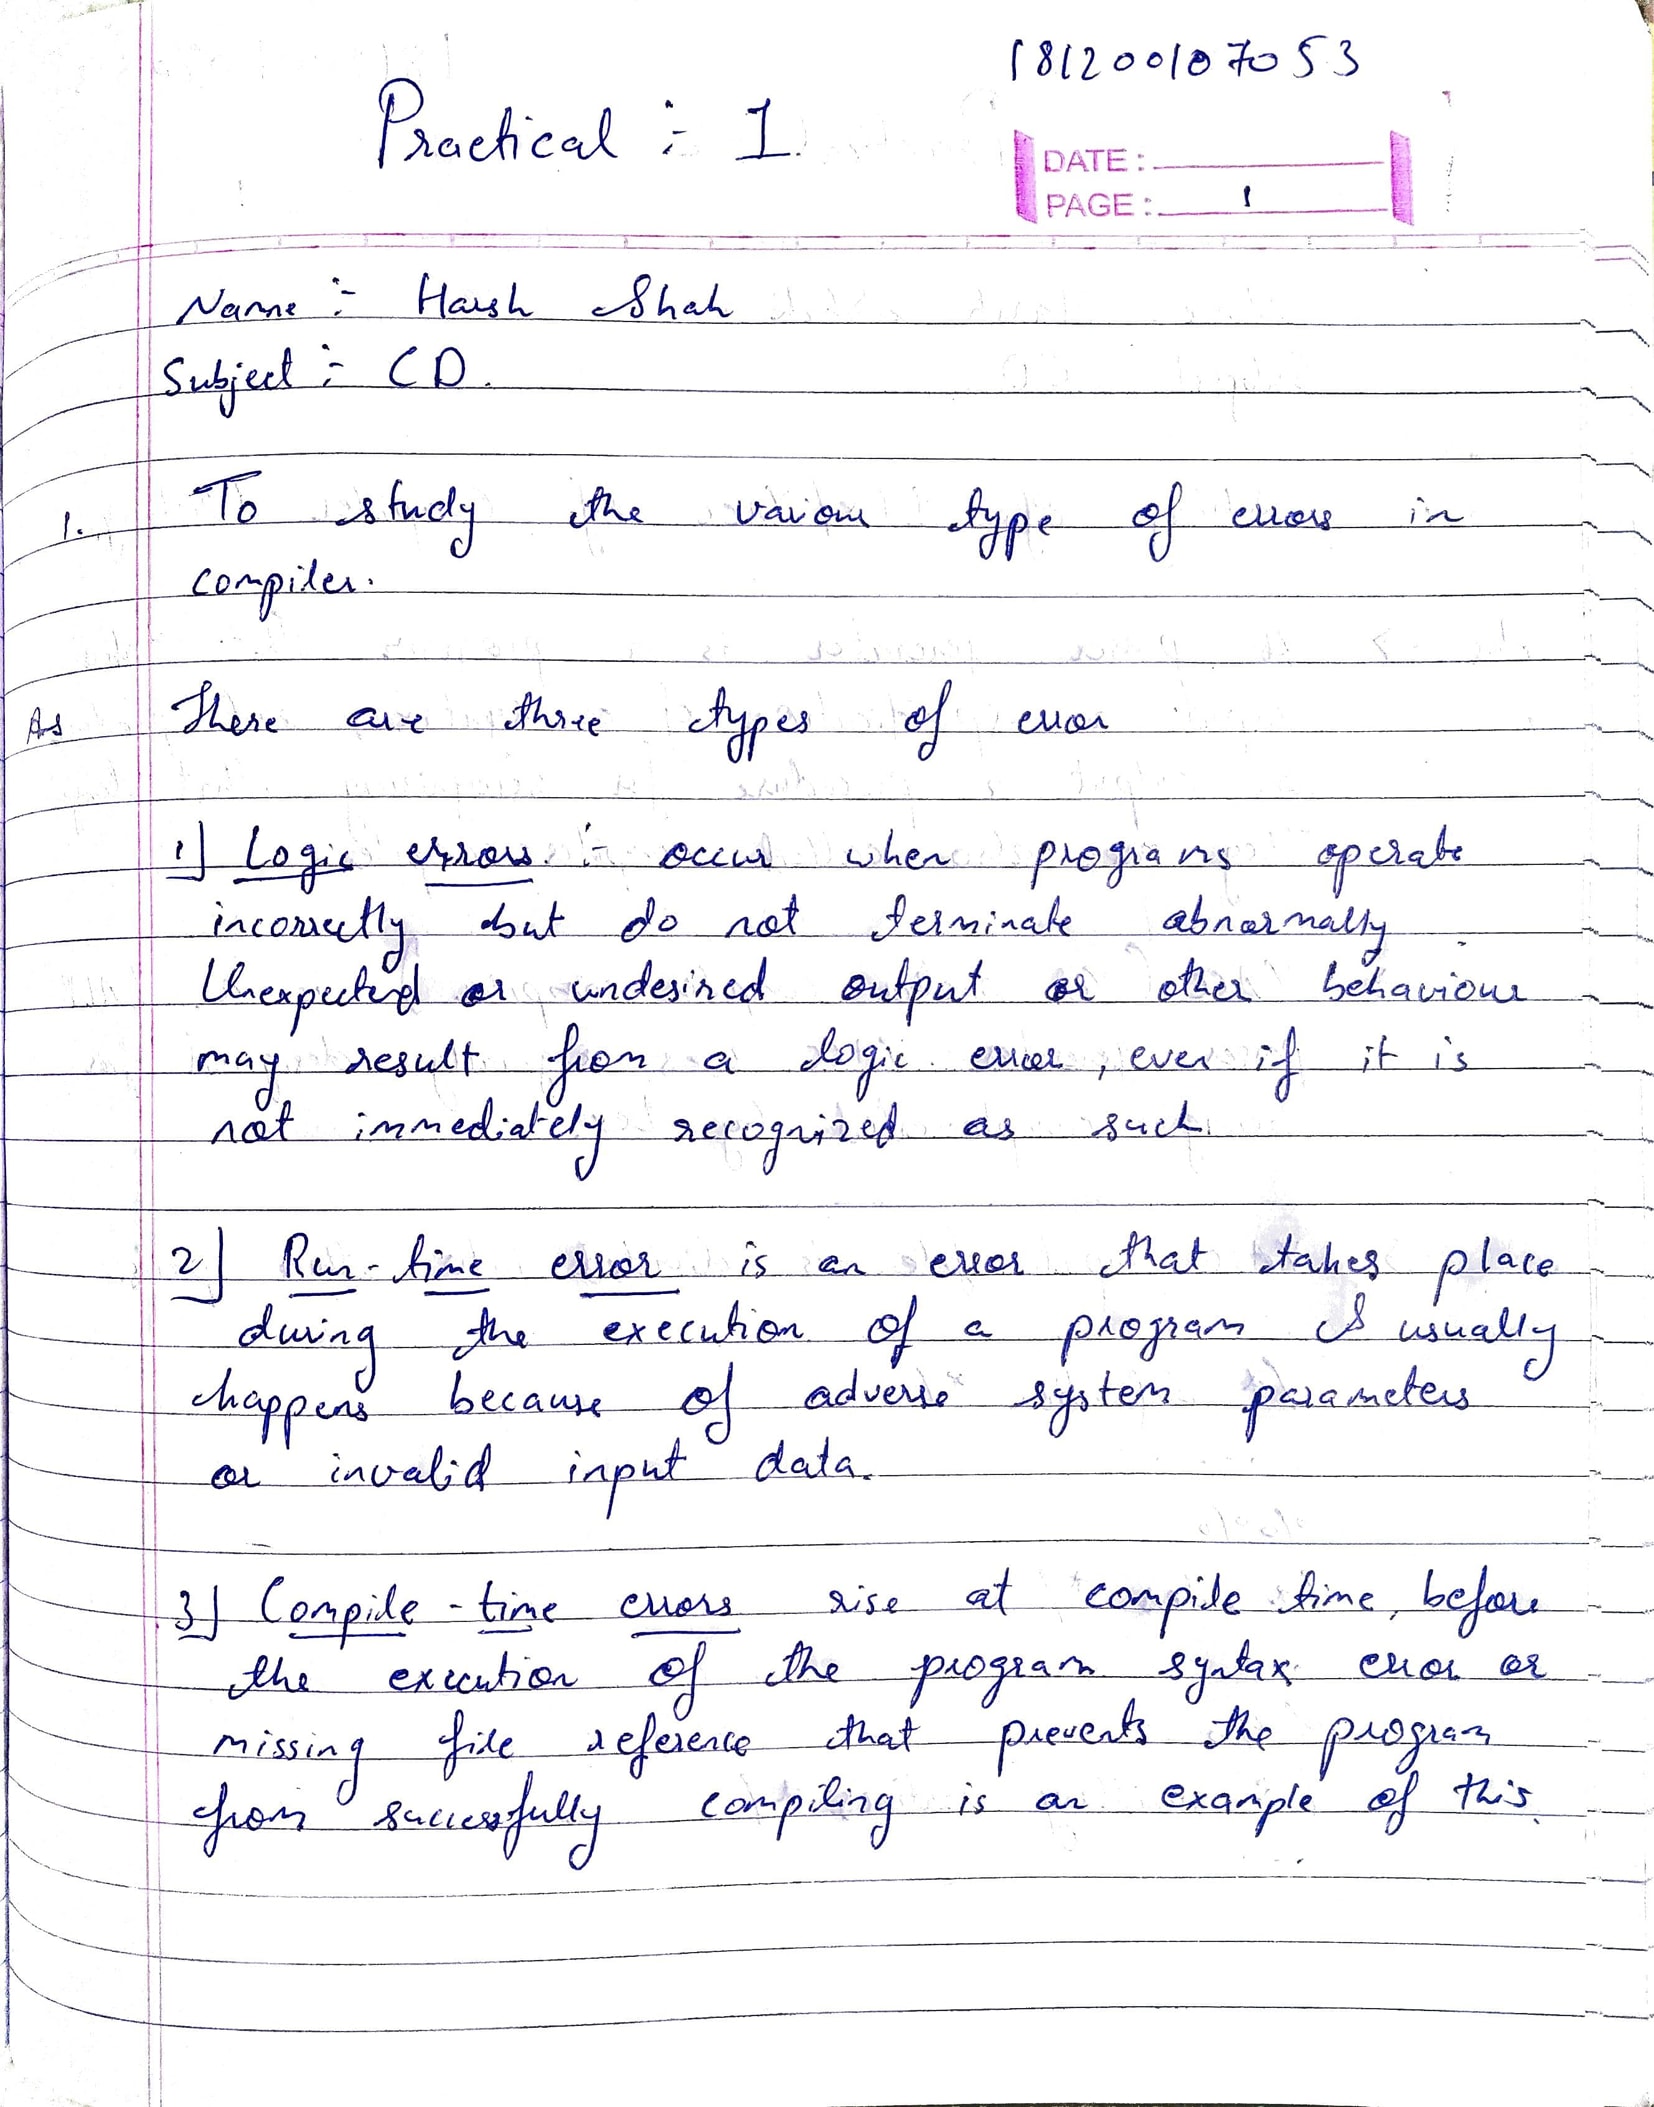 181200107053
Practical :- 1.
DATE :
PAGE : 1
Name :- Harsh Shah
Subject :- CD.
1. To study the various type of errors in
compiler.
As There are three types of error
1] Logic errors :- occur when programs operate
incorrectly but do not terminate abnormally
Unexpected or undesired output or other behaviour
may result from a logic error, even if it is
not immediately recognized as such.
2] Run-time error is an error that takes place
during the execution of a program & usually
happens because of adverse system parameters
or invalid input data.
3] Compile-time errors rise at compile time, before
the execution of the program syntax error or
missing file reference that prevents the program
from successfully compiling is an example of this.